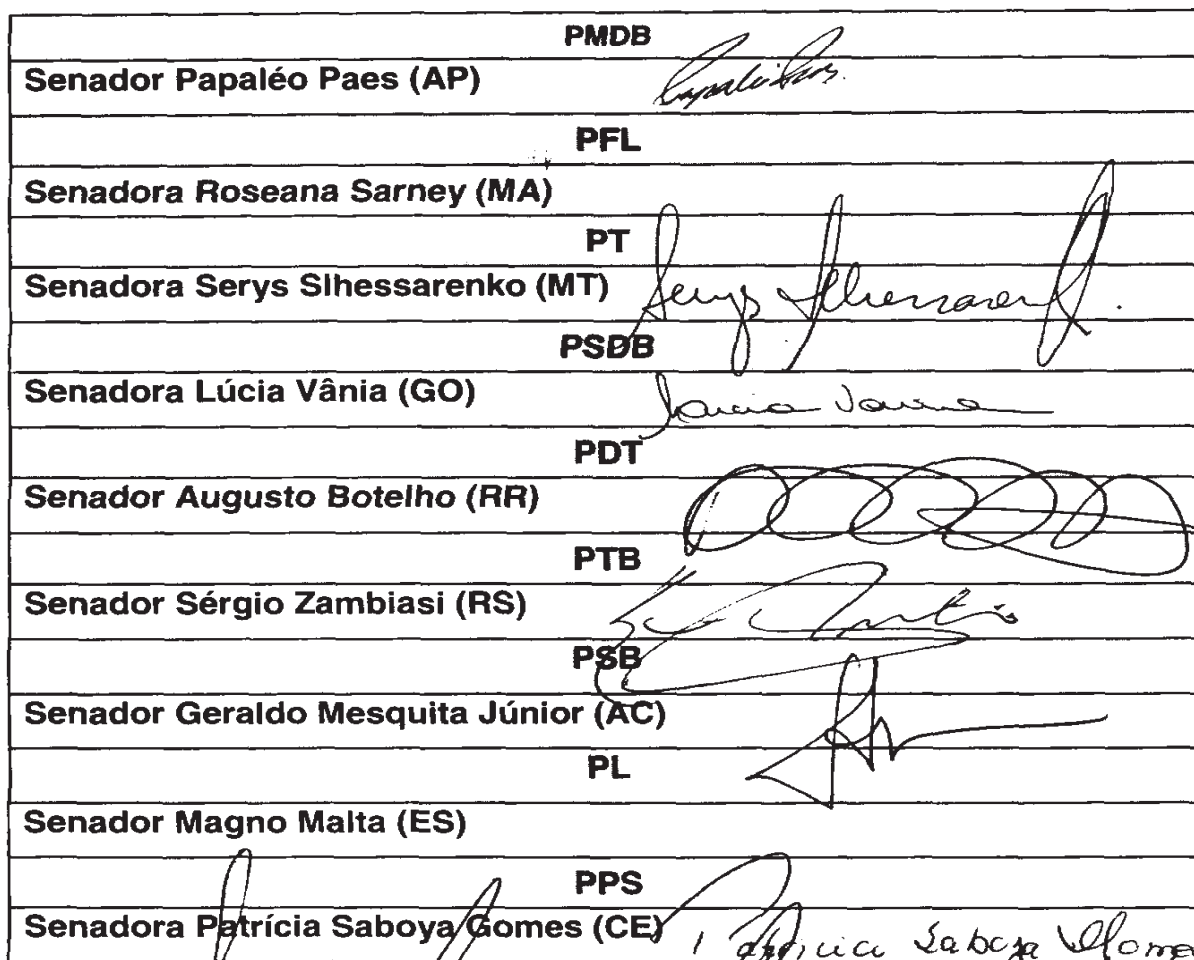 PMDB
Senador Papaléo Paes (AP)
PFL
Senadora Roseana Sarney (MA)
PT
Senadora Serys Slhessarenko (MT) Serys Slhessarenko
PSDB
Senadora Lúcia Vânia (GO) Lucia Vania
PDT
Senador Augusto Botelho (RR)
PTB
Senador Sérgio Zambiasi (RS)
PSB
Senador Geraldo Mesquita Júnior (AC)
PL
Senador Magno Malta (ES)
PPS
Senadora Patrícia Saboya Gomes (CE) Patricia Saboya Gomes